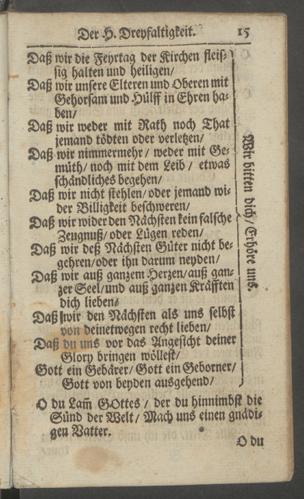 Der H. Dreyfaltigkeit. 15
Daß wir die Feyrtag der Kirchen fleis-
sig halten und heiligen/
Daß wir unsere Elteren und Oberen mit
Gehorsam und Hülff in Ehren ha-
ben/
Daß wir weder mit Rath noch That
jemand tödten oder verletzen/
Daß wir nimmermehr/ weder mit Ge-
müth/ noch mit dem Leib/ etwas
schändliches begehen/
Daß wir nicht stehlen/ oder jemand wi-
der Billigkeit beschweren/
Daß wir wider den Nächsten kein falsche
Zeugnuß/ oder Lügen reden/
Daß wir deß Nächsten Güter nicht be-
gehren/ oder ihn darum neyden/
Daß wir auß ganzem Herzen/ auß gan-
zer Seel/ und auß ganzen Kräfften
dich lieben/
Daß wir den Nächsten als uns selbst
von deinetwegen recht lieben/
Daß du uns vor das Angesicht deiner
Glory bringen wöllest/
Gott ein Gebärer/ Gott ein Geborner/
Gott von beyden ausgehend/
Wir bitten dich/ Erhöre uns.
O du Lam̃ GOttes/ der du hinnimbst die
Sünd der Welt/ Mach uns einen gnädi-
gen Vatter.
O du